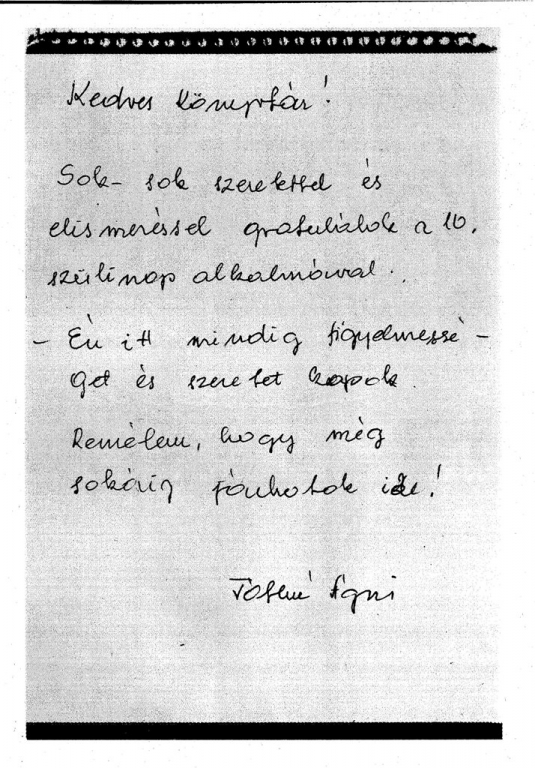 Kedves Könyvtár!
Sok- sok szeretettel és
elismeréssel gratulálok a 10.
szülinap alkalmával.
- Én itt mindig figyelmessé-
get és szeretet kapok.
Remélem, hogy még
sokáig járhatok ide!
Ági